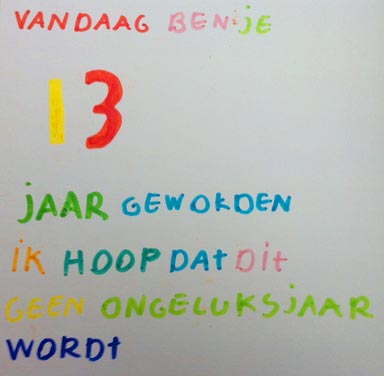 VANDAAG BEN JE
13
JAAR GEWORDEN
IK HOOP DAT DIT
GEEN ONGELUKSJAAR
WORDT